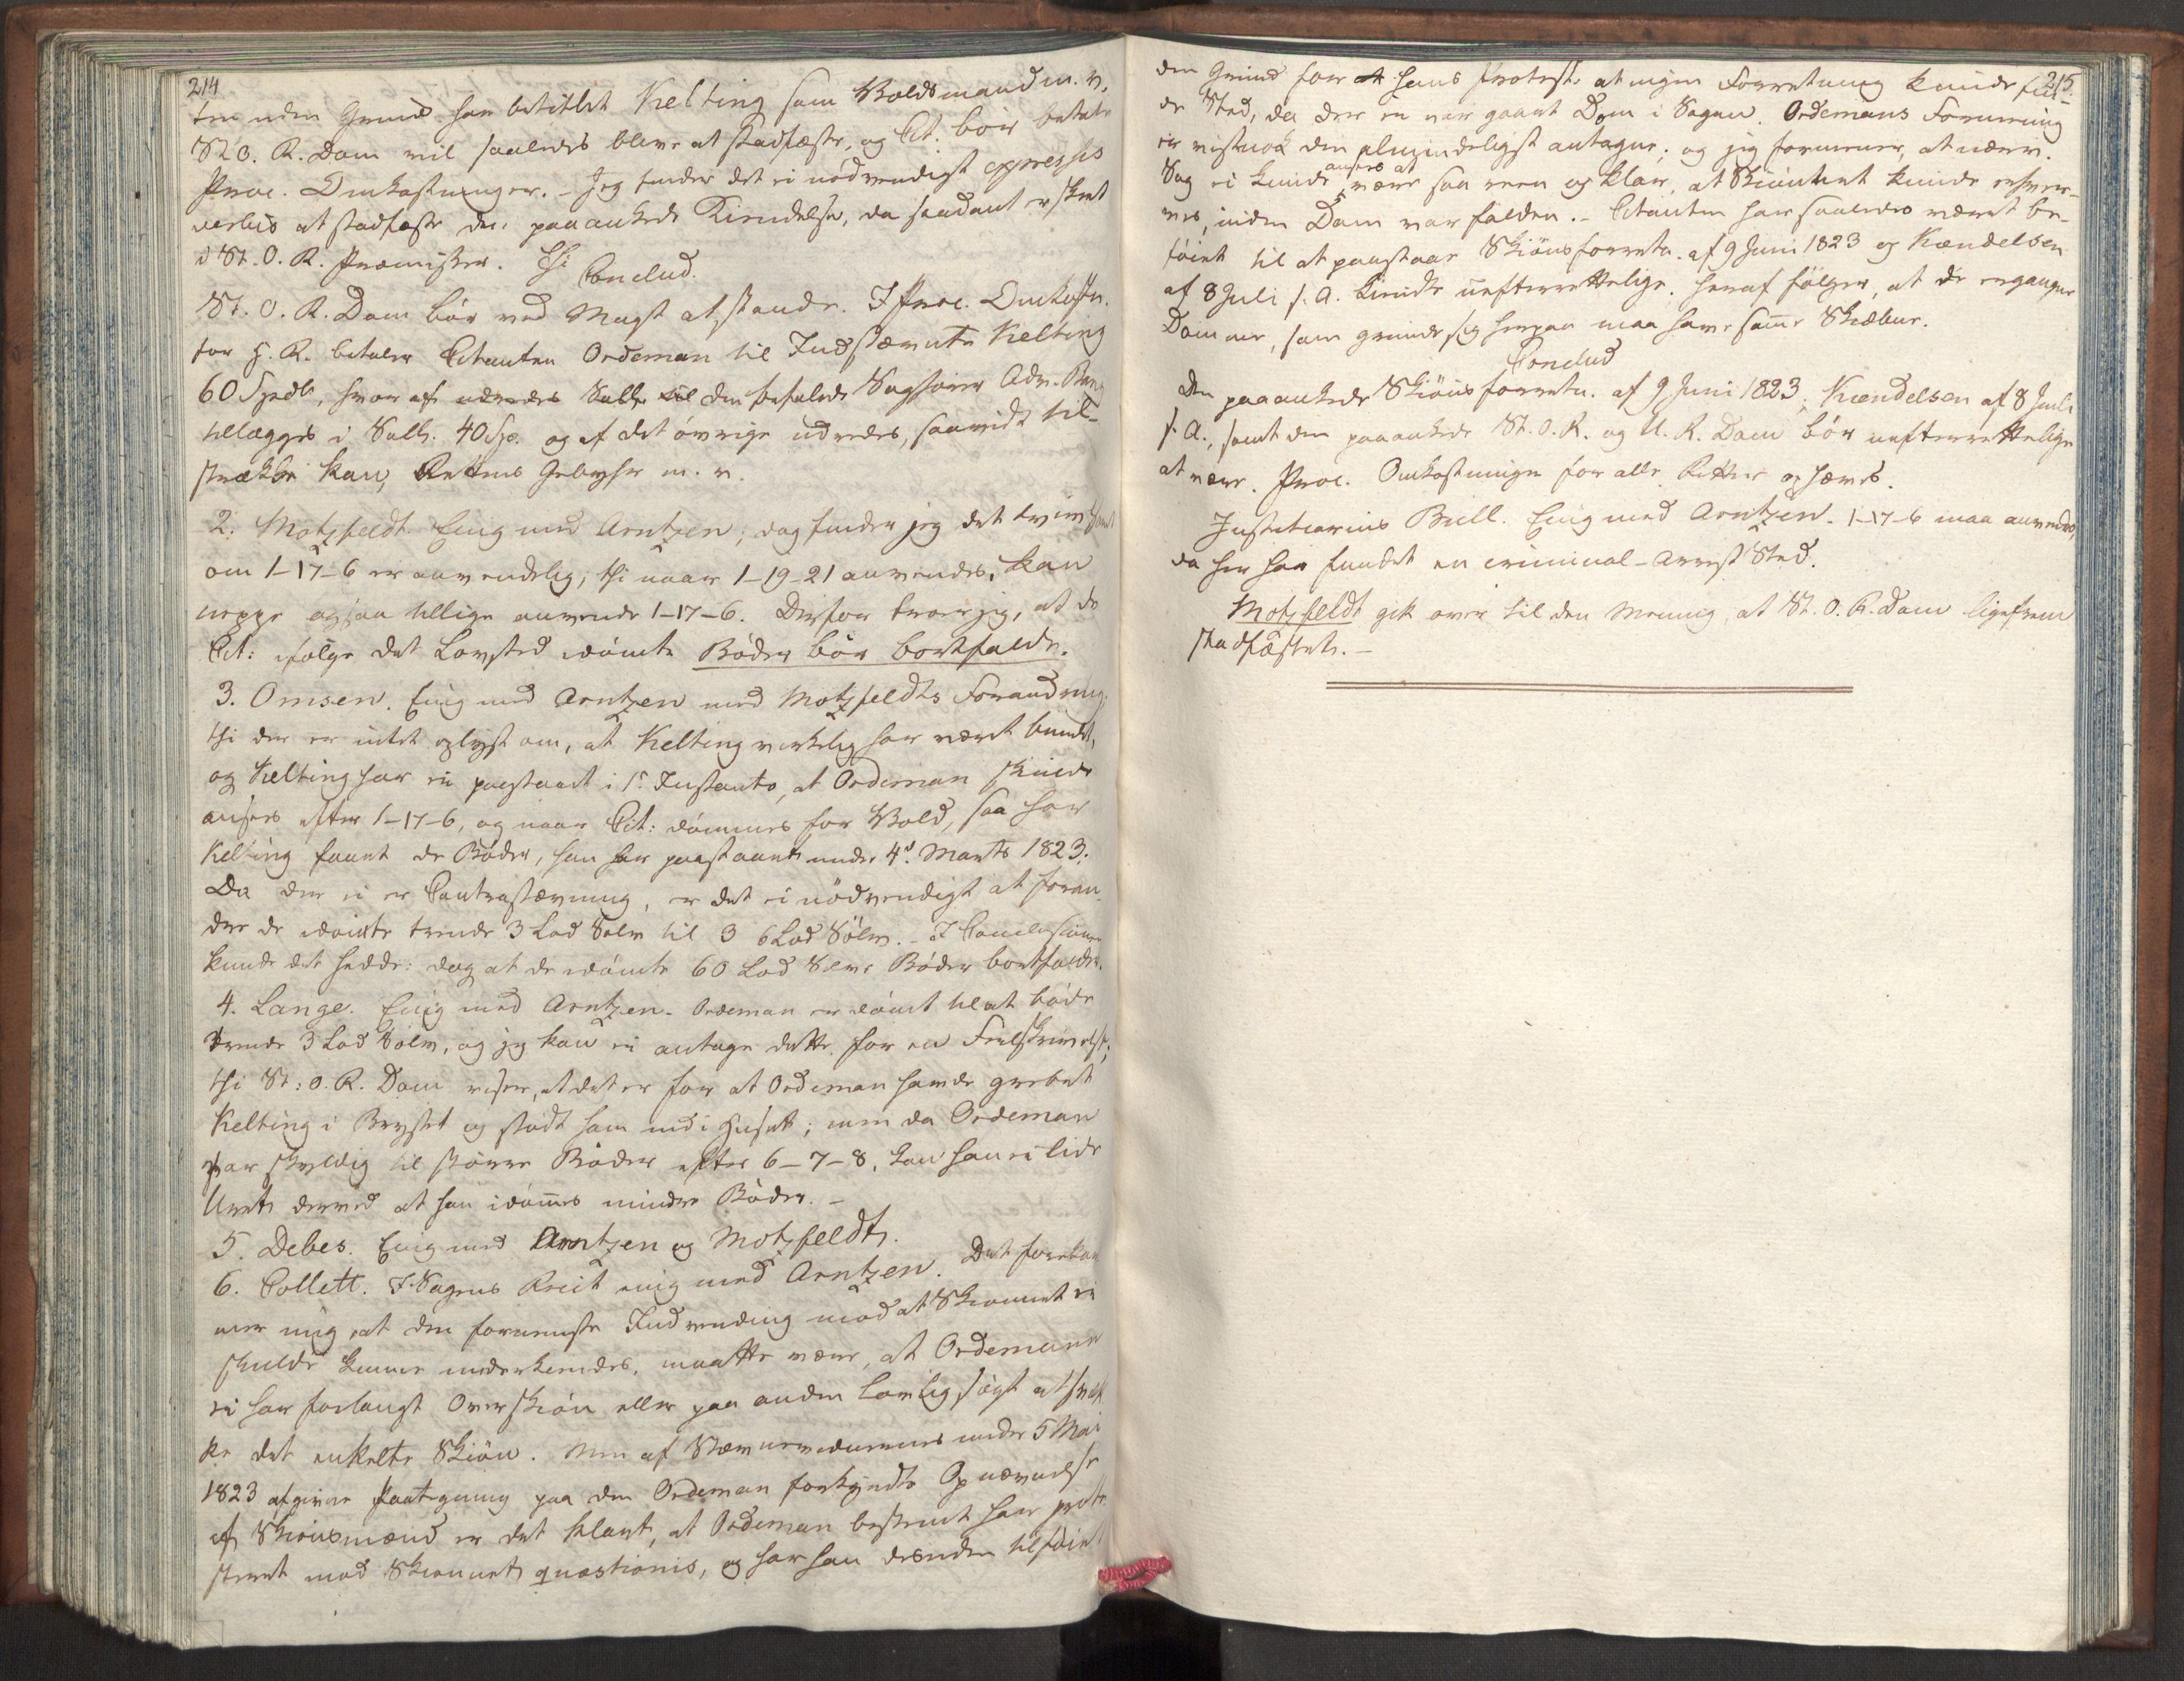 214
ten uden Grund har betitlet Kelting som Voldsmand m. v.
St. O. R. Dom vil saaledes blive at stadfæste, og Cit. bør betale
Proc. Omkostninger. - Jeg finder det ei nödvendigt expressis
verbis at stadfæste den paaankede Kiendelse, da saadant er skeet
i St. O. R. Præmisser. Thi
Conclud.
St. O. R. Dom bör ved Magt at stande. I Proc. Omkostn.
for H. R. betaler Citanten Ordeman til Indstævnte Kelting
60 Spdlr, hvoraf den befalede Sagfører Adv.
tillægges i Sallr. 40 Sp. og af det övrige udredes, saavidt til-
strække kan, Rettens Gebyhr m. v.
2. Motzfeldt. Enig med Arntzen; dog finder jeg det tvivlsomt
om 1-17-6 er anvendelig; thi naar 1-19-21 anvendes, kan
neppe ogsaa tillige anvendes 1-17-6. Derfor troer jeg, at de
Cit: ifølge det Lovsted idömte Böder bör bortfalde.
3. Omsen. Enig med Arntzen med Motzfeldts Forandring,
thi der er intet oplyst om, at Kelting virkelig har været bundet,
og Kelting har ei paastaaet i 1ste Instants, at Ordeman skulde
ansees efter 1-17-6, og naar Cit: dömmes for Vold, saa har
Kelting faaet de Böder, han har paastaaet under 4d. Marts 1823.
Da der ei er Contrastævning, er det ei nödvendigt at foran-
dre de idömte trende 3 Lod Sølv til 3 6 Lod Sölv. - I Conclusionen
kunde det hedde: dog at de idömte 60 Lod Sölvs Böder bortfalder.
4. Lange. Enig med Arntzen. Ordeman er dömt til at böde
trende 3 Lod Sölv, og jeg kan ei antage dette for en Feilskrivelse;
thi St: O. R. Dom viser, at det er for at Ordeman havde grebet
Kelting i Brystet og stödt ham ind i Huset; men da Ordeman
var skyldig til större Böder efter 6-7-8, kan han ei lide
Uret derved at han idömes mindre Böder. -
5. Debes. Enig med Arntzen og Motzfeldt.
6. Collett. I Sagens Recit enig med Arntzen. Det forekom-
mer mig, at den fornemste Indvending mod at Skiönnet ei
skulde kunne underkiendes, maatte være, at Ordeman
ei har forlangt Overskiön eller paa anden lovlig sögt at svæk-
ke det enkelte Skiön. Men af Stævnevidnernes under 5 Mai
1823 afgivne Paategning paa den Ordeman forkyndte Opnævnelse
af Skiönsmænd er det klart, at Ordeman bestemt har prote-
steret mod Skiönnet quæstionis, og har han desuden tilföiet
215.
den Grund for hans Protest, at ingen Forretning kunde fin-
de Sted, da der ei var gaaet Dom i Sagen. Ordemans Formening
er vistnok den almindeligst antagne; og jeg formener, at nærv.
Sag ei kunde ansees at være saa reen og klar, at Skiönnet kunde erhver-
ves, inden Dom var falden. - Citanten har saaledes været be-
föiet til at paastaae Skiönsforretn. af 9 Juni 1823 og Kiendelsen
af 8 Juli s. A. kiendte uefterrettelige. Heraf fölger, at de ergangne
Domme, som grunde sig herpaa maa have samme Skiæbne.
Conclud
Den paaankede Skiönsforretn. af 9 Juni 1823, Kiendelsen af 8 Juli
s. A., samt den paaankede St. O. R. og U. R. Dom bör uefterrettelige
at være. Proc. Omkostninger for alle Retter ophæves.
Justitiarius Bull. Enig med Arntzen. 1-17-6 maa anvendes,
da her har fundet en criminal-Arrest Sted.
Motzfeldt gik over til den Mening, at St. O. R. Dom ligefrem
stadfæstes. -